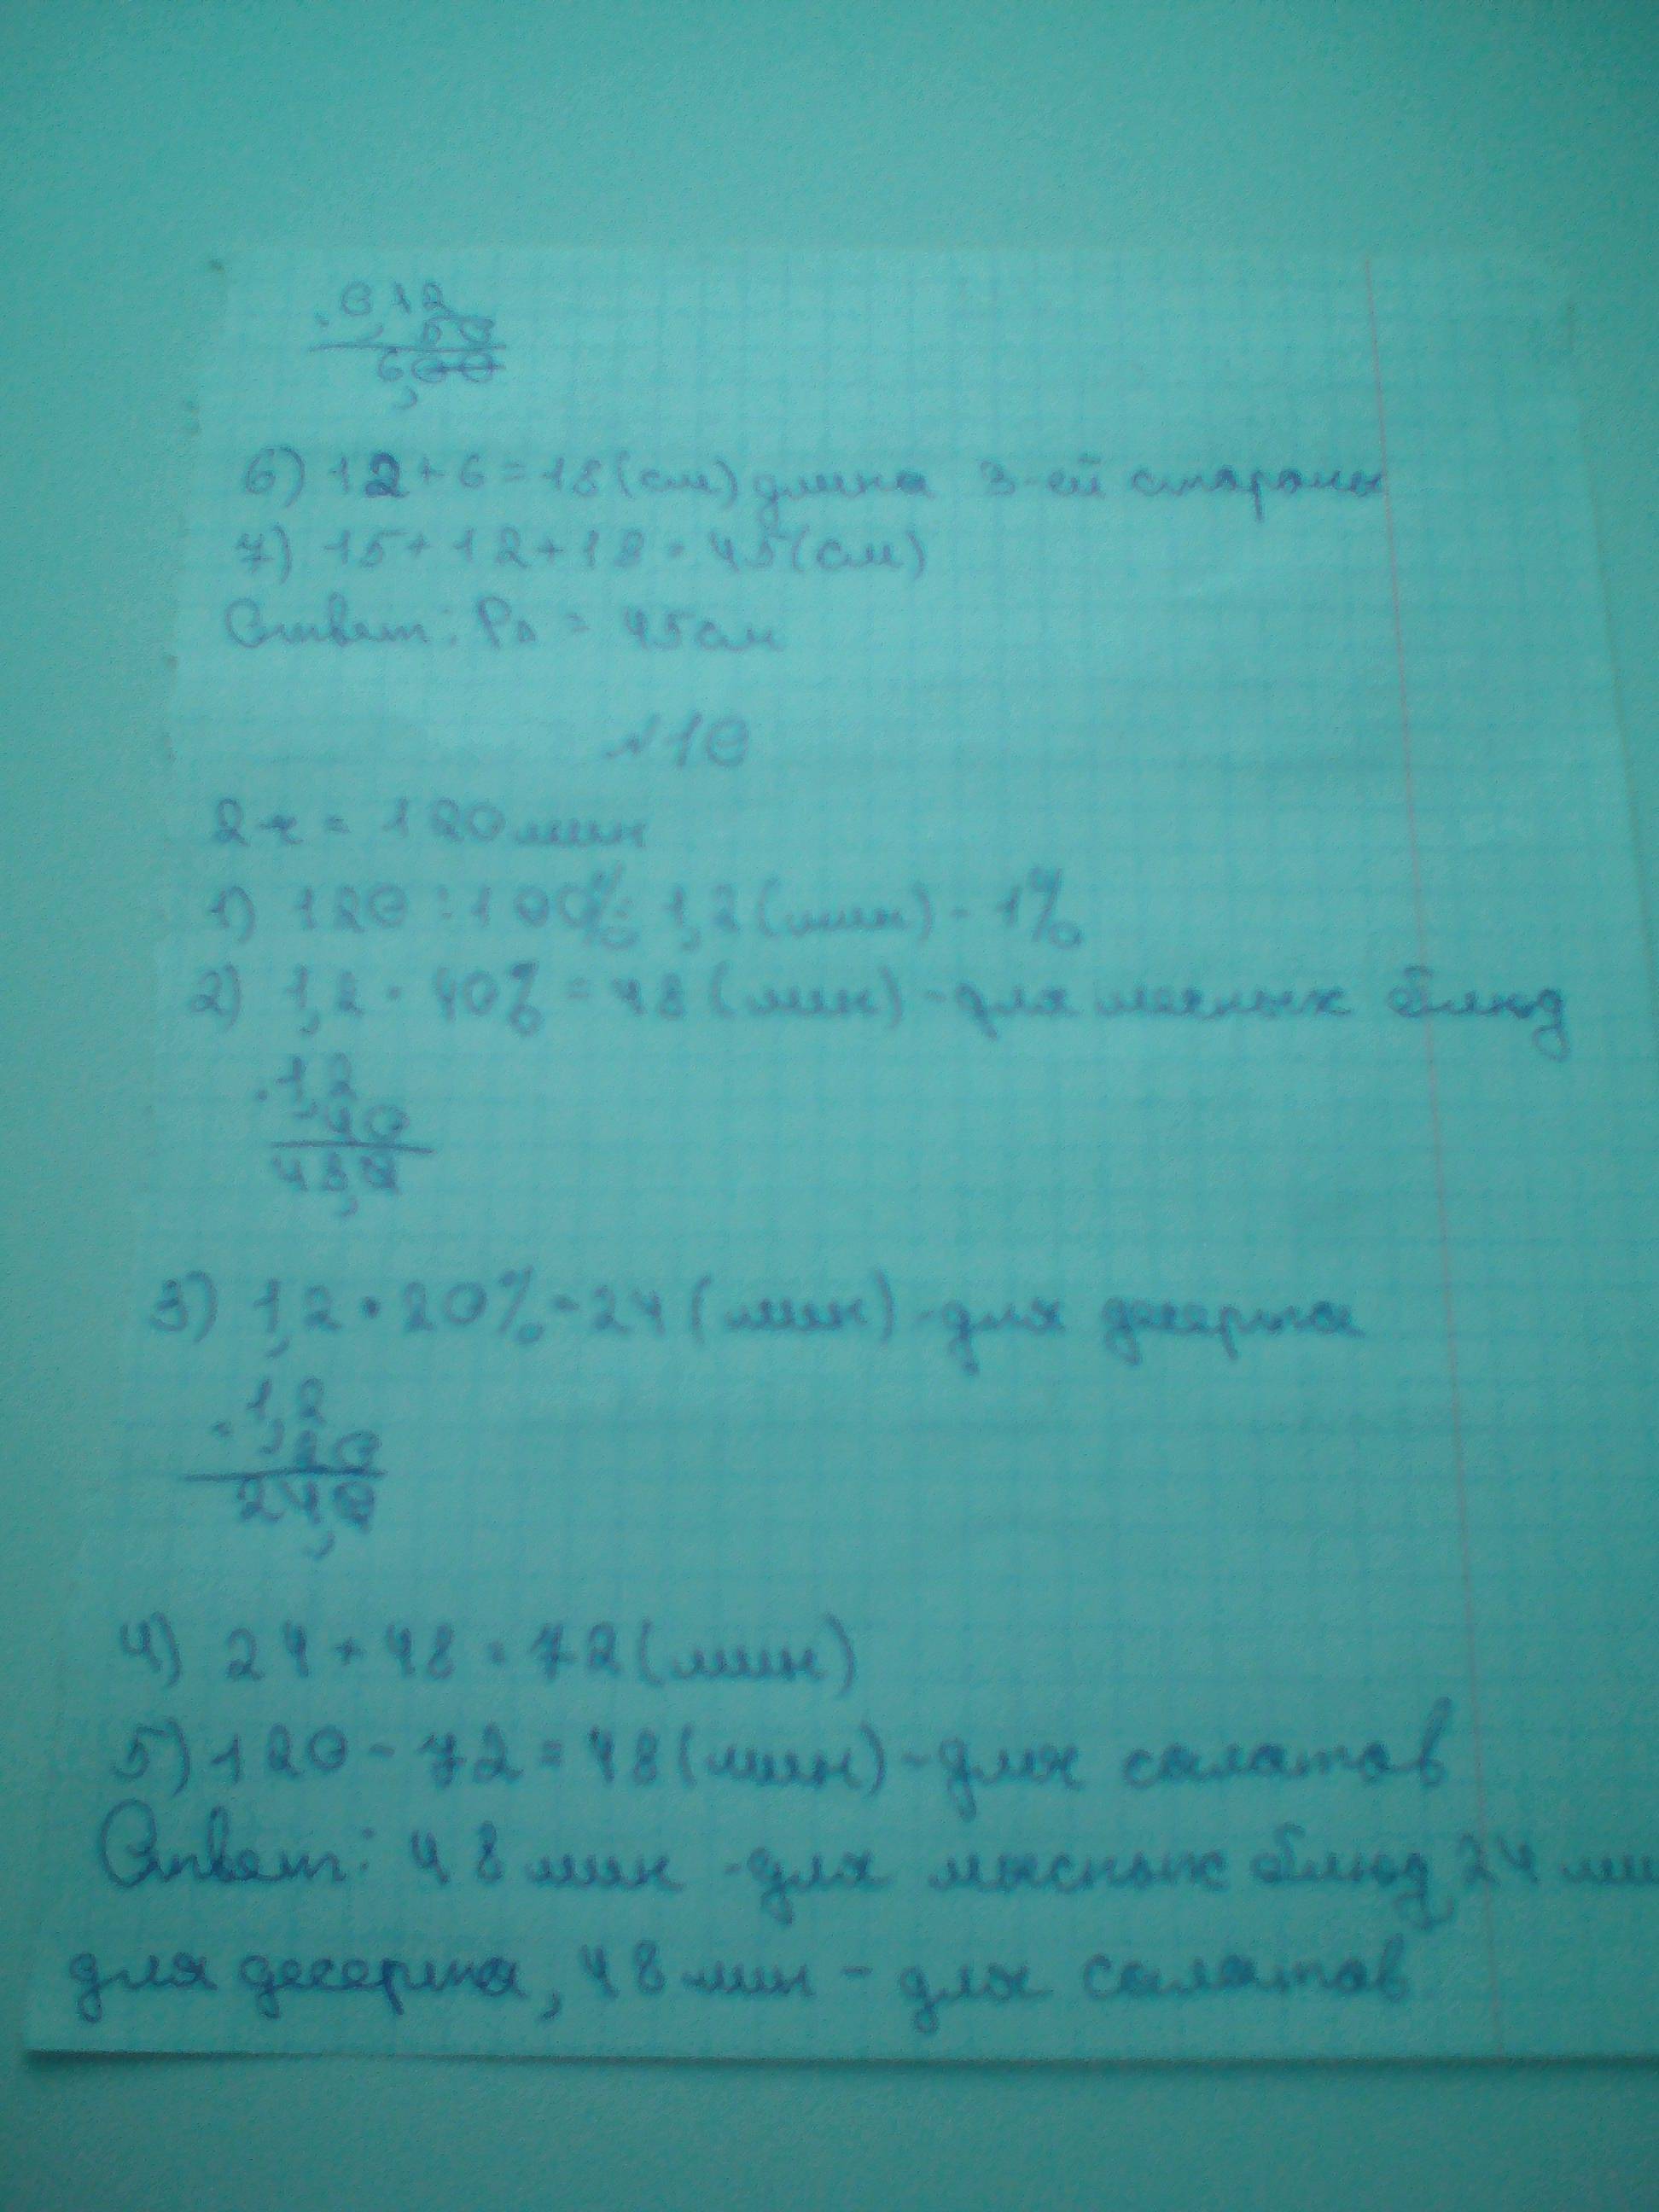 0,12
50
6,00
6) 12 + 6 = 18 (см) длина 3-ей стороны
7) 15 + 12 + 18 = 45 (см)
Ответ: P∆ = 45 см
№10
2 ч = 120 мин
1) 120 : 100% = 1,2 (мин) - 1%
2) 1,2 · 40% = 48 (мин) - для мясных блюд
1,2
40
48,0
3) 1,2 · 20% = 24 (мин) - для десерта
1,2
20
24,0
4) 24 + 48 = 72 (мин)
5) 120 - 72 = 48 (мин) - для салатов
Ответ: 48 мин - для мясных блюд, 24 ми
для десерта, 48 мин - для салатов